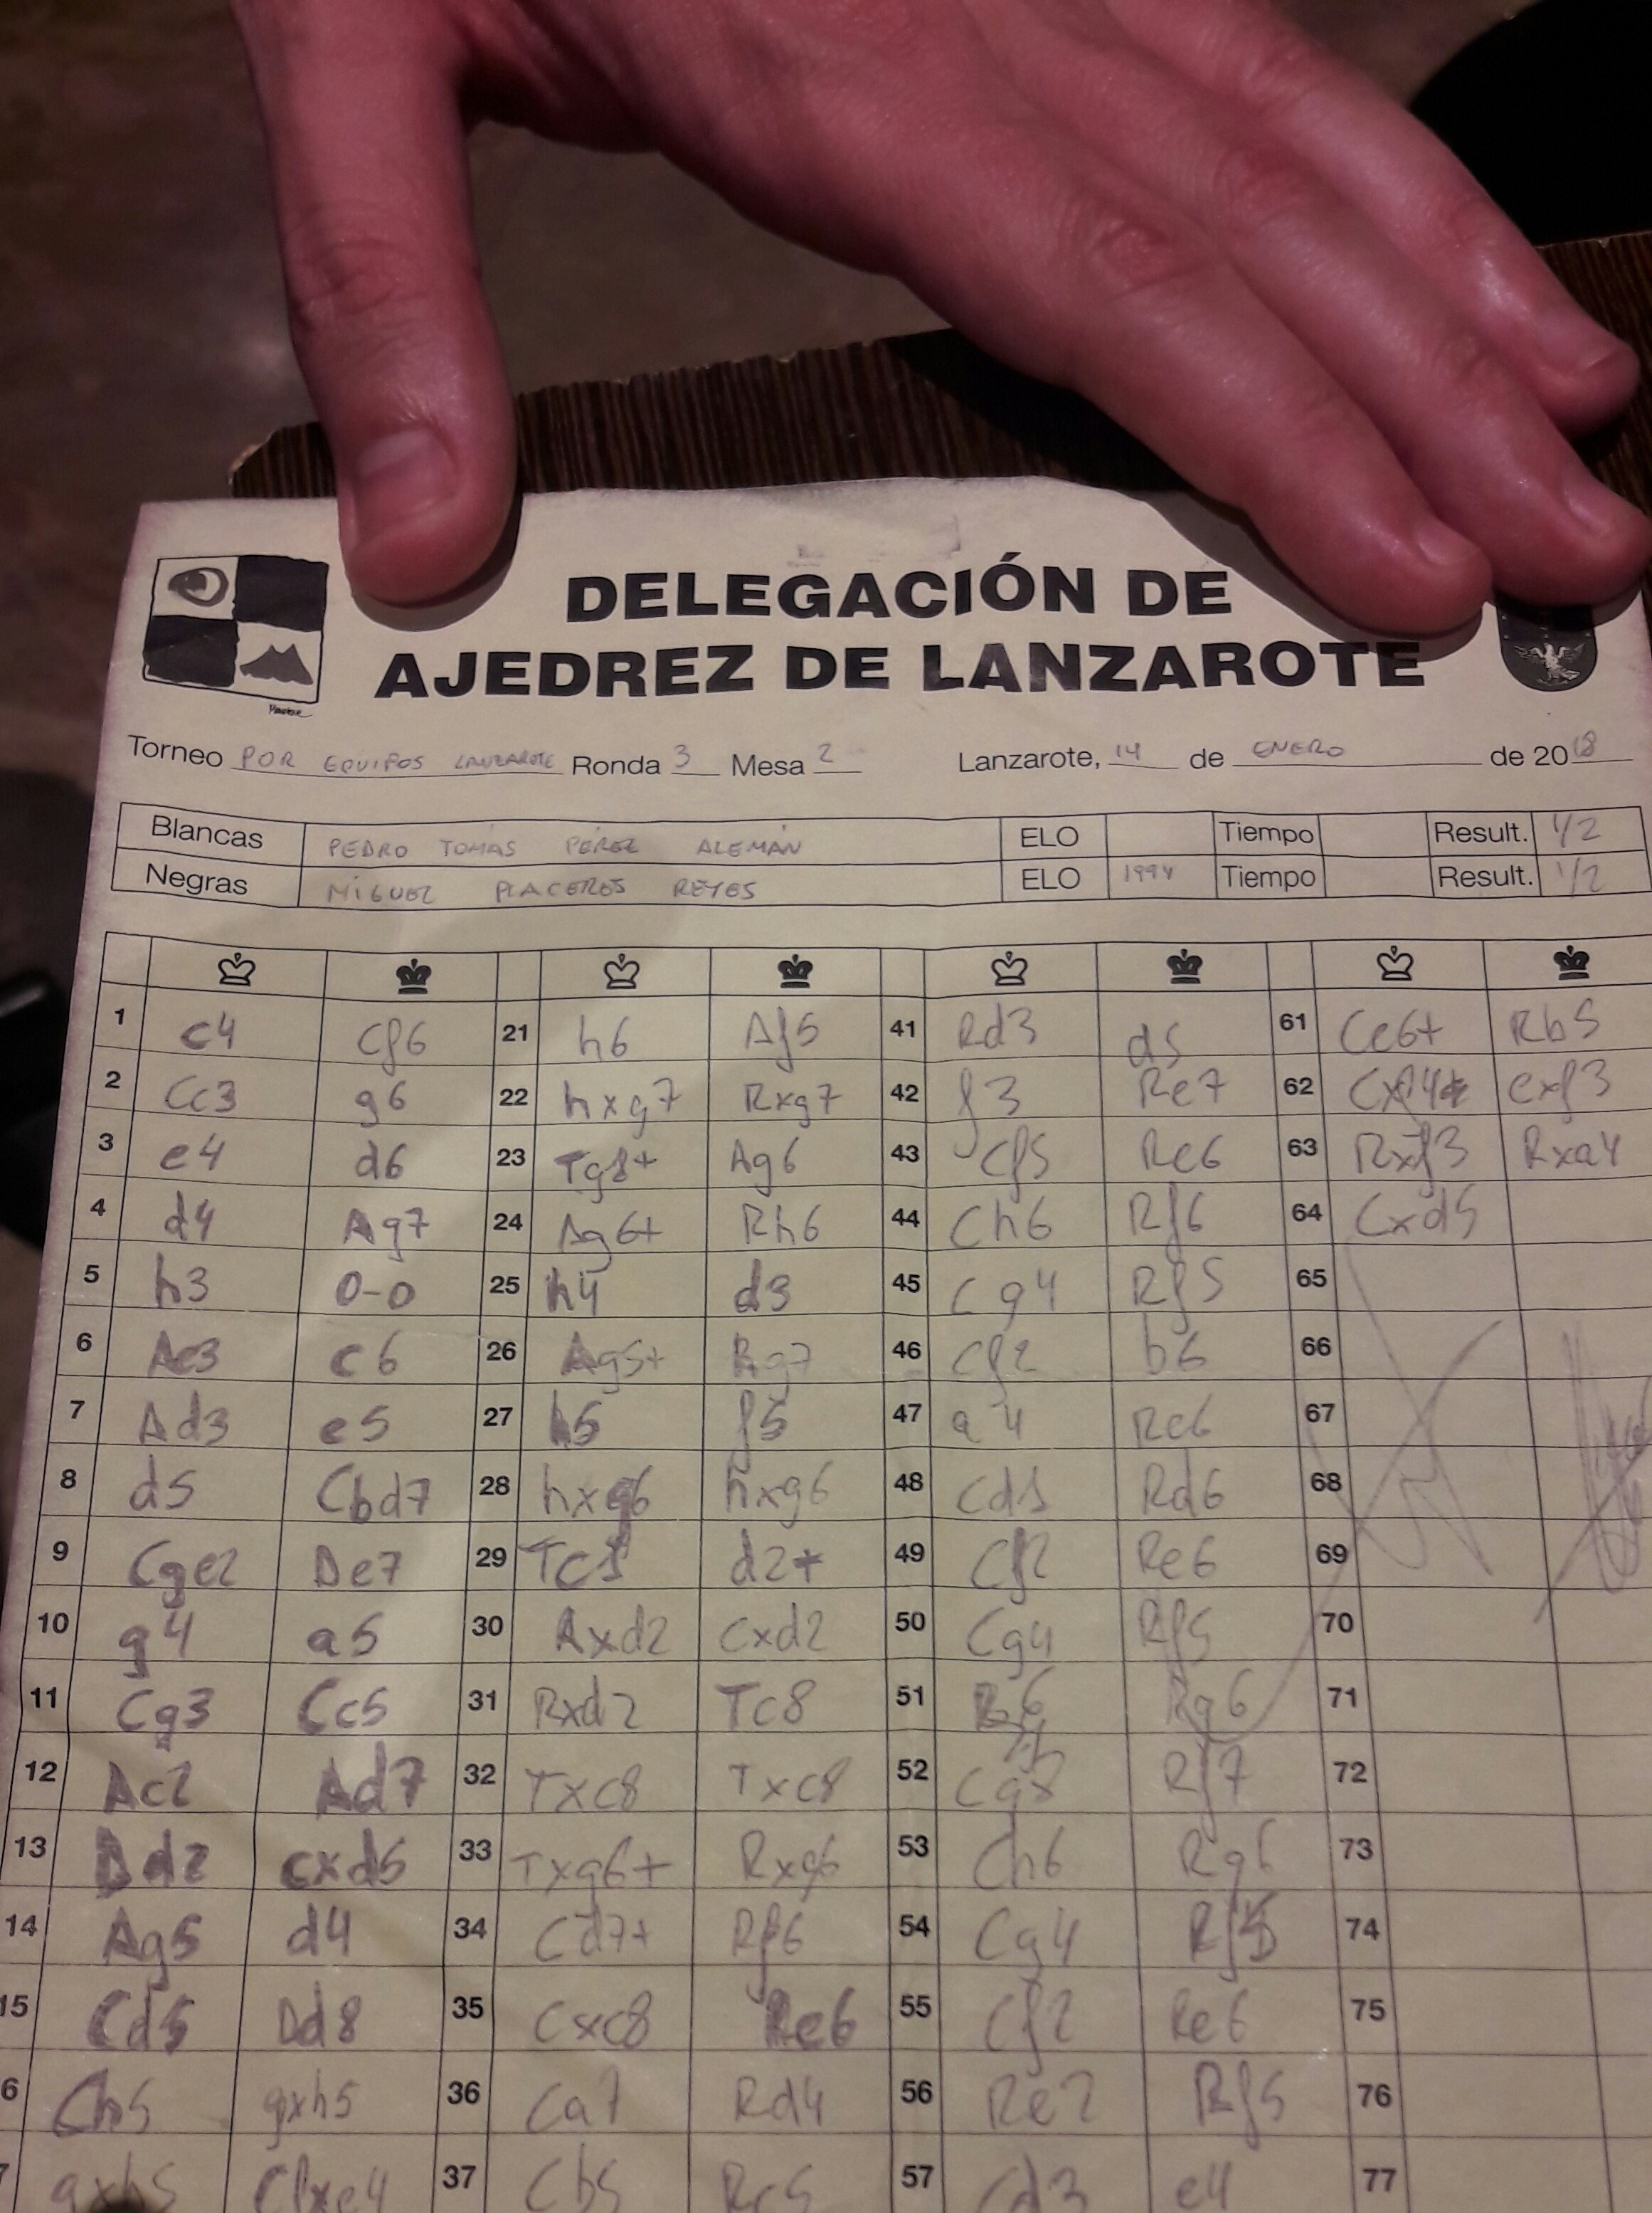 DELEGACIÓN DE
AJEDREZ DE LANZAROTE
Torneo POR EQUIPOS LANZAROTE Ronda 3 Mesa 2 Lanzarote, 14 de ENERO de 2018
Blancas PEDRO TOMÁS PÉREZ ALEMÁN ELO Tiempo Result. 1/2
Negras MIGUEL PLACERES REYES ELO 1994 Tiempo Result. 1/2
1 c4 Cf6 21 h6 Af5 41 Rd3 d5 61 Ce6+ Rb5
2 Cc3 g6 22 hxg7 Rxg7 42 f3 Re7 62 Cxf4+ exf3
3 e4 d6 23 Tg1+ Ag6 43 Cf5 Re6 63 Rxf3 Rxa4
4 d4 Ag7 24 Ag6+ Rh6 44 Ch6 Rf6 64 Cxd5
5 h3 0-0 25 h4 d3 45 Cg4 Rf5 65
6 Ae3 c6 26 Ag5+ Rg7 46 Cf2 b6 66
7 Ad3 e5 27 h5 f5 47 a4 Re6 67
8 d5 Cbd7 28 hxg6 hxg6 48 Cd1 Rd6 68
9 Cge2 De7 29 Tc1 d2+ 49 Cf2 Re6 69
10 g4 a5 30 Axd2 Cxd2 50 Cg4 Rf5 70
11 Cg3 Cc5 31 Rxd2 Tc8 51 Rg6 71
12 Ac2 Ad7 32 Txc8 Txc8 52 Rf7 72
13 Dd2 cxd5 33 Txg6+ Rxg6 53 Ch6 Rg6 73
14 Ag5 d4 34 Cd7+ Rf6 54 Cg4 Rf5 74
15 Cd5 Dd8 35 Cxc8 Re6 55 Cf2 Re6 75
6 Ch5 gxh5 36 Ca7 Rd4 56 Re2 Rf5 76
7 gxh5 Cfxe4 37 Cb5 Rc5 57 Cd3 e4 77